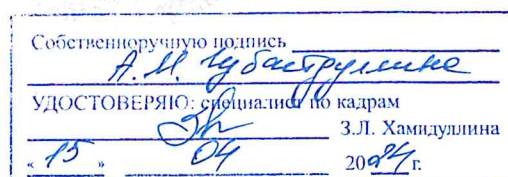 Собственноручную подпись
А.М. Губайдуллина
УДОСТОВЕРЯЮ: специалист по кадрам
З.Л. Хамидуллина
« 15 » 04 2024 г.